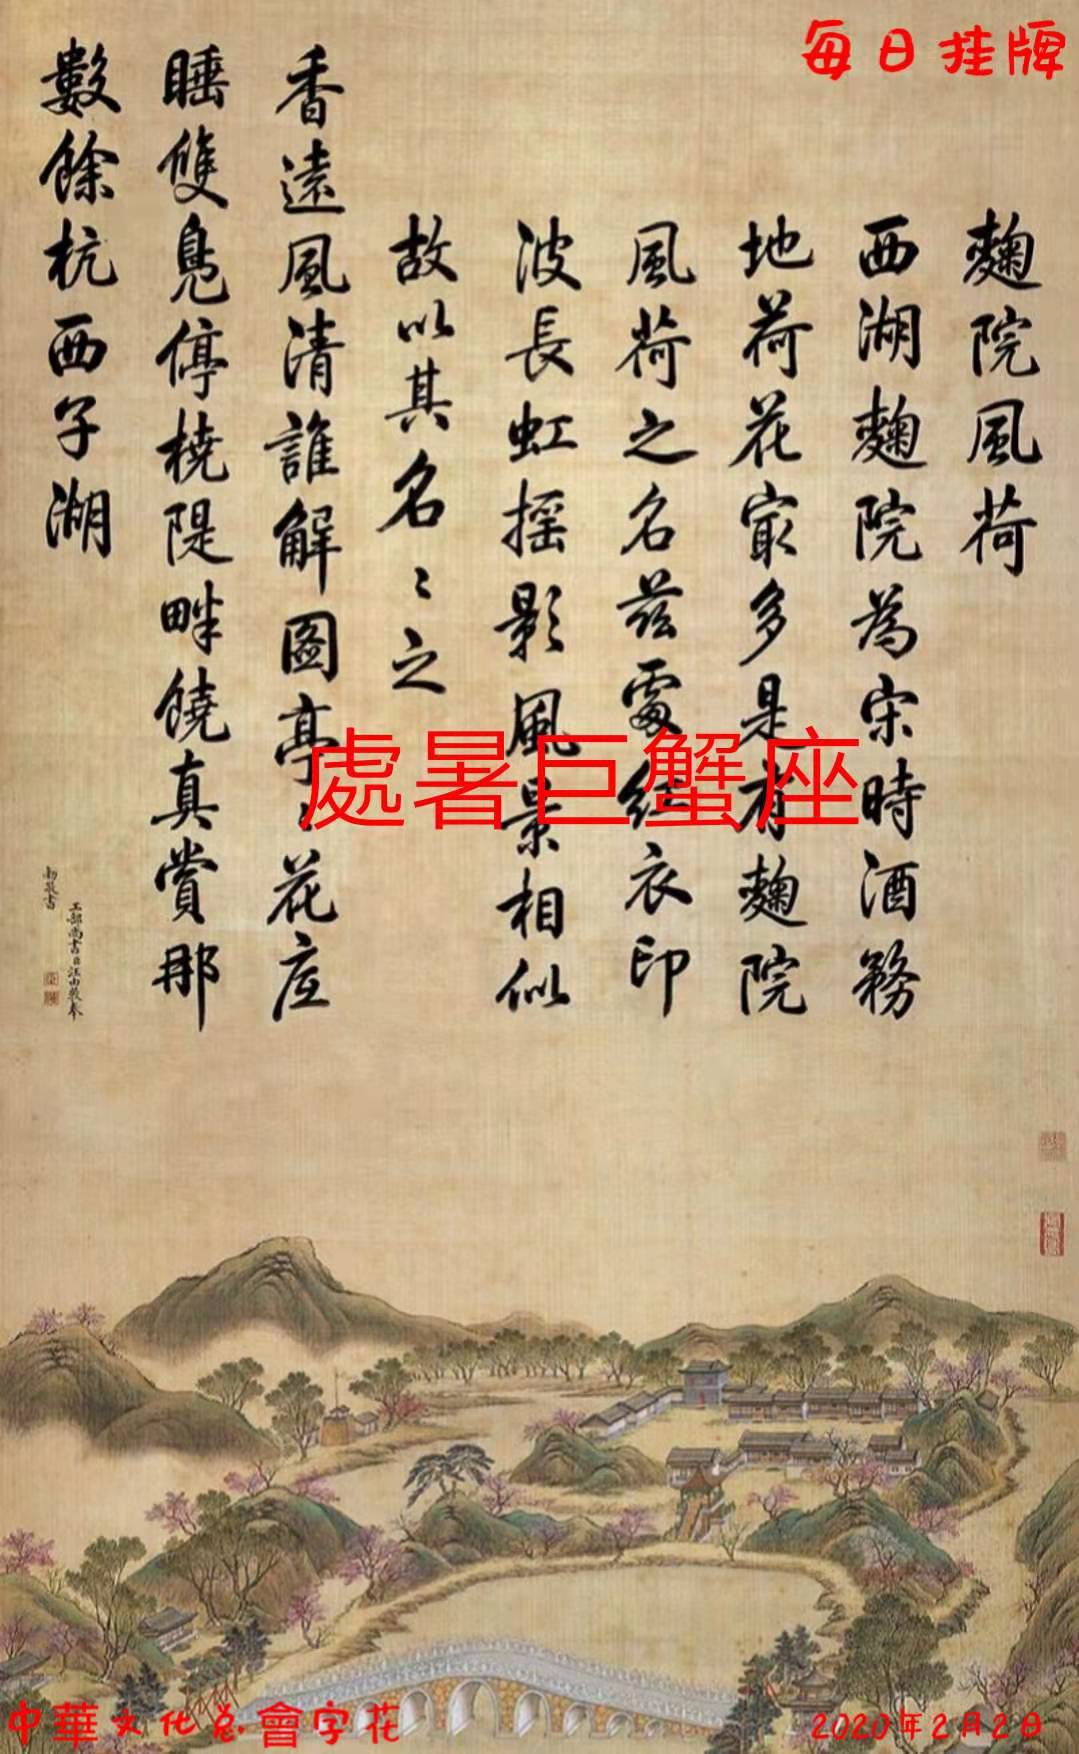 每日挂牌
麯院風荷
西湖麯院為宋時酒務
地荷花冣多是有麯院
風荷之名茲處紅衣印
波長虹摇影風景相似
故以其名〻之
香遠風清誰解圖亭〻花底
睡雙鳧停橈隄畔饒真賞那
數餘杭西子湖
工部尚書臣汪由敦奉
勅敬書
處暑巨蟹座
中華文化总會字花
2020年2月2日